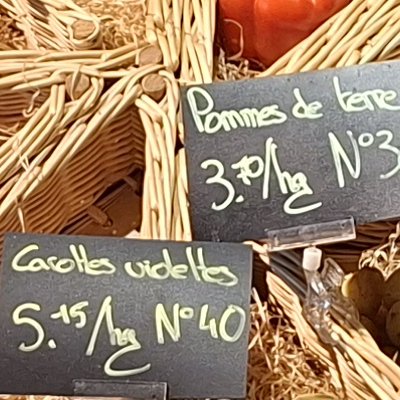 Pommes de terre
3.70/kg N°3
Carottes violettes
5.15/kg N°40